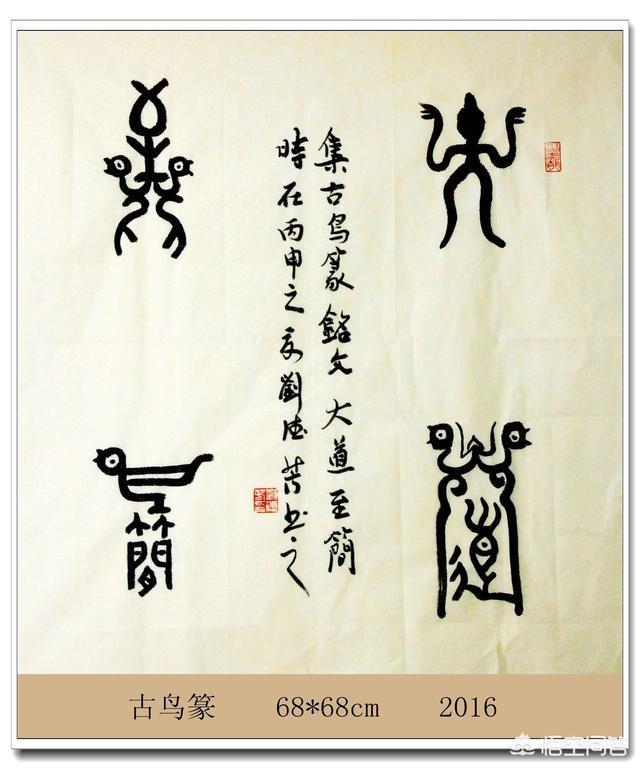 大道
集古鸟篆銘文大道至簡
時在丙申之劉书之
至簡
古鸟篆 68*68cm 2016
悟空问答